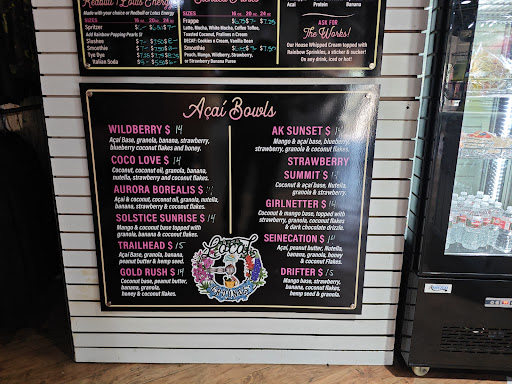 Redbull / Lotus Energy
SIZES 16 oz 20 oz 24 oz
Made with your choice or RedBull or Lotus Energy
Spritzer
Add Rainbow Popping Pearls $1
Slushee
Smoothie
Tye Dye
Italian Soda
SIZES 16 oz 20 oz 24 oz
Frappe
Latte, Mocha, White Mocha, Coffee Toffee,
Toasted Coconut, Pralines n Cream
DECAF: Cookies n Cream, Vanilla Bean
Smoothie
Peach, Mango, Wildberry, Strawberry,
or Strawberry Banana Puree
Protein Banana
ASK FOR
The Works!
Our House Whipped Cream topped with
Rainbow Sprinkles, a sticker & sucker!
On any drink, iced or hot!
Açaí Bowls
WILDBERRY $ 14
Açaí Base, granola, banana, strawberry,
blueberry coconut flakes and honey.
COCO LOVE $ 14
Coconut, coconut oil, granola, banana,
nutella, strawberry and coconut flakes.
AURORA BOREALIS $
Açaí & coconut, coconut oil, granola, nutella,
banana, strawberry & coconut flakes.
SOLSTICE SUNRISE $ 14
Mango & coconut base topped with
granola, banana & coconut flakes.
TRAILHEAD $ 15
Açaí Base, granola, banana,
peanut butter & hemp seed.
GOLD RUSH $ 14
Coconut base, peanut butter,
banana, granola.
honey & coconut flakes.
AK SUNSET $ 14
Mango & açaí base, blueberry,
strawberry, granola & coconut flakes.
STRAWBERRY
SUMMIT $ 14
Coconut & açaí base, Nutella,
granola & strawberry.
GIRLNETTER $ 14
Coconut & mango base, topped with
strawberry, granola, coconut flakes
& dark chocolate drizzle.
SEINECATION $ 14
Açaí, peanut butter, Nutella,
banana, granola, honey
& coconut Flakes.
DRIFTER $ 15
Mango base, strawberry,
banana, coconut flakes,
hemp seed & granola.
Local